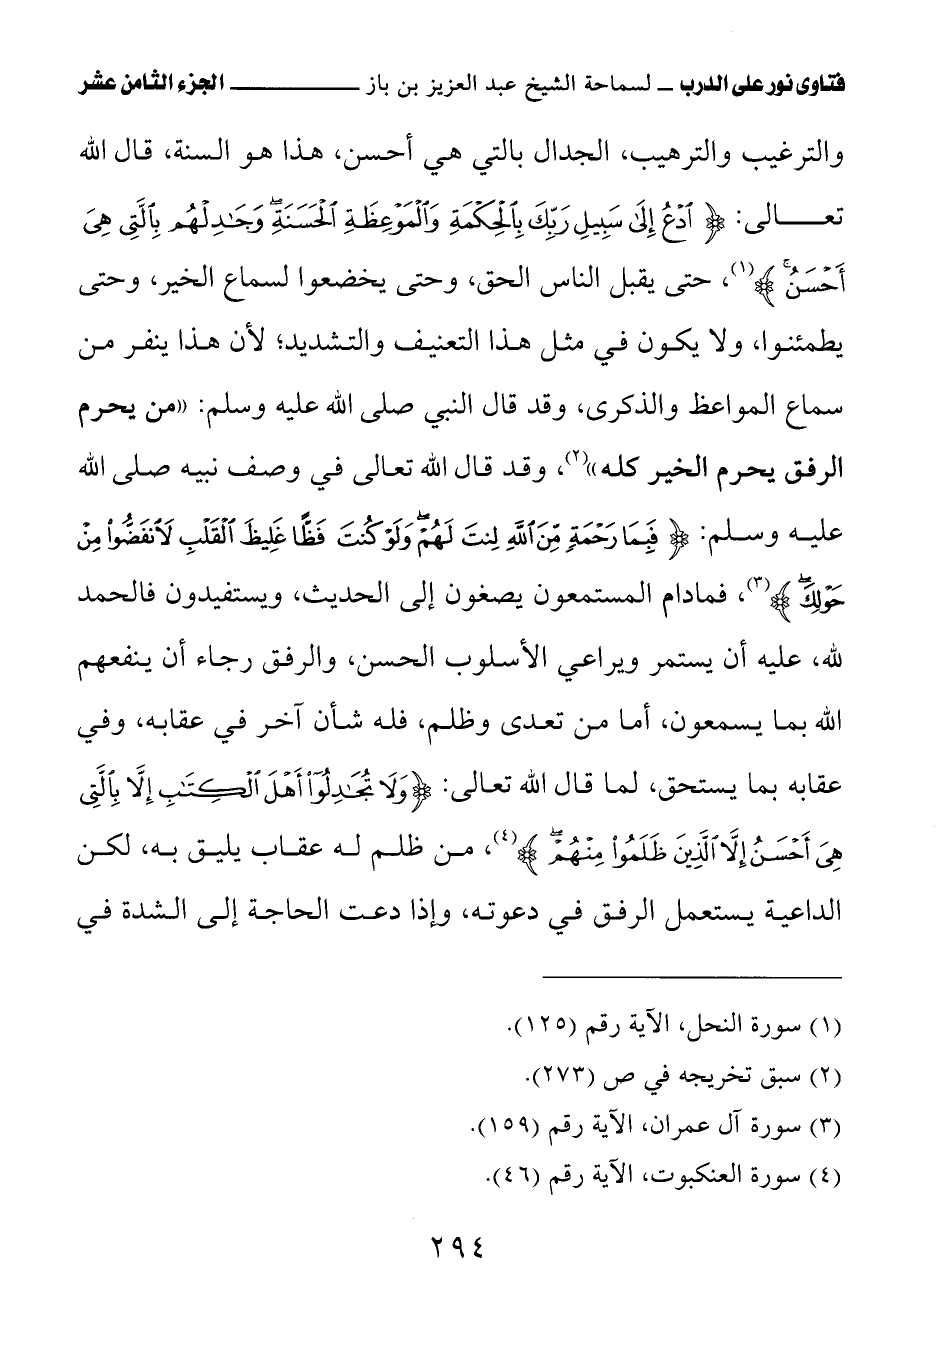 فتاوى نور على الدرب – لسماحة الشيخ عبد العزيز بن باز ــــــــــــــ الجزء الثامن عشر
والترغيب والترهيب، الجدال بالتي هي أحسن، هذا هو السنة، قال الله
تعـــــالى: ﴿ ٱدْعُ إِلَىٰ سَبِيلِ رَبِّكَ بِٱلْحِكْمَةِ وَٱلْمَوْعِظَةِ ٱلْحَسَنَةِ ۖ وَجَٰدِلْهُم بِٱلَّتِى هِىَ
أَحْسَنُ ۚ ﴾(١)، حتى يقبل الناس الحق، وحتى يخضعوا لسماع الخير، وحتى
يطمئنوا، ولا يكون في مثل هذا التعنيف والتشديد؛ لأن هذا ينفر من
سماع المواعظ والذكرى، وقد قال النبي صلى الله عليه وسلم: «من يحرم
الرفق يحرم الخير كله»(٢)، وقد قال الله تعالى في وصف نبيه صلى الله
عليه وسلم: ﴿ فَبِمَا رَحْمَةٍ مِّنَ ٱللَّهِ لِنتَ لَهُمْ ۖ وَلَوْ كُنتَ فَظًّا غَلِيظَ ٱلْقَلْبِ لَٱنفَضُّوا۟ مِنْ
حَوْلِكَ ۖ ﴾(٣)، فمادام المستمعون يصغون إلى الحديث، ويستفيدون فالحمد
لله، عليه أن يستمر ويراعي الأسلوب الحسن، والرفق رجاء أن ينفعهم
الله بما يسمعون، أما من تعدى وظلم، فله شأن آخر في عقابه، وفي
عقابه بما يستحق، لما قال الله تعالى: ﴿ وَلَا تُجَٰدِلُوٓا۟ أَهْلَ ٱلْكِتَٰبِ إِلَّا بِٱلَّتِى
هِىَ أَحْسَنُ إِلَّا ٱلَّذِينَ ظَلَمُوا۟ مِنْهُمْ ۖ ﴾(٤)، من ظلم له عقاب يليق به، لكن
الداعية يستعمل الرفق في دعوته، وإذا دعت الحاجة إلى الشدة في
(١) سورة النحل، الآية رقم (١٢٥).
(٢) سبق تخريجه في ص (٢٧٣).
(٣) سورة آل عمران، الآية رقم (١٥٩).
(٤) سورة العنكبوت، الآية رقم (٤٦).
٢٩٤